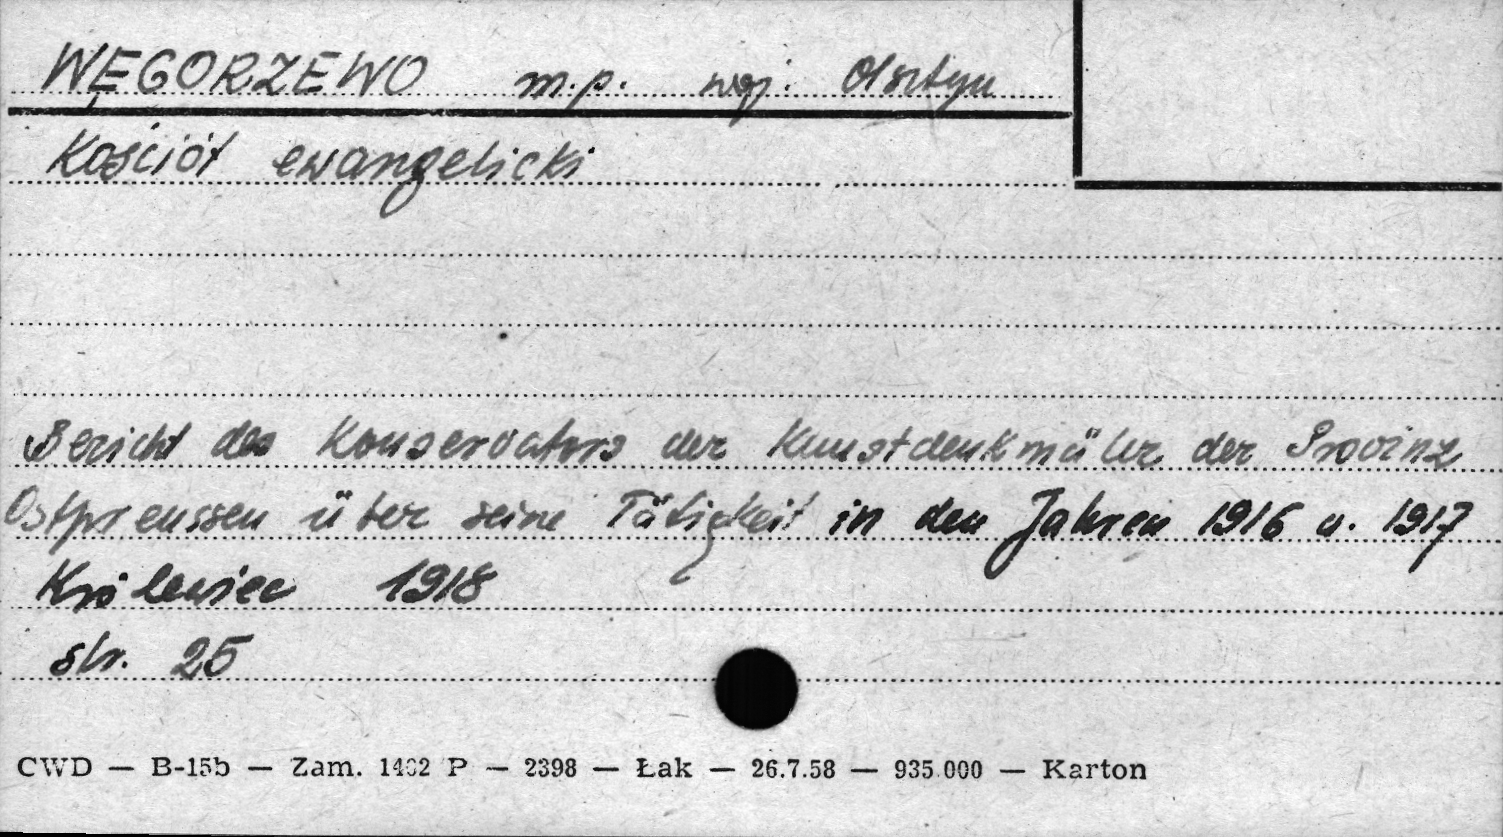 WĘGORZEWO m.p. woj. Olsztyn
Kościół ewangelicki
Bericht des Konservators der Kunstdenkmäler der Provinz
Ostpreussen über seine Tätigkeit in den Jahren 1916 u. 1917
Królewiec 1918
str. 25
CWD — B-15b — Zam. 1402 P — 2398 — Łak — 26.7.58 — 935.000 — Karton